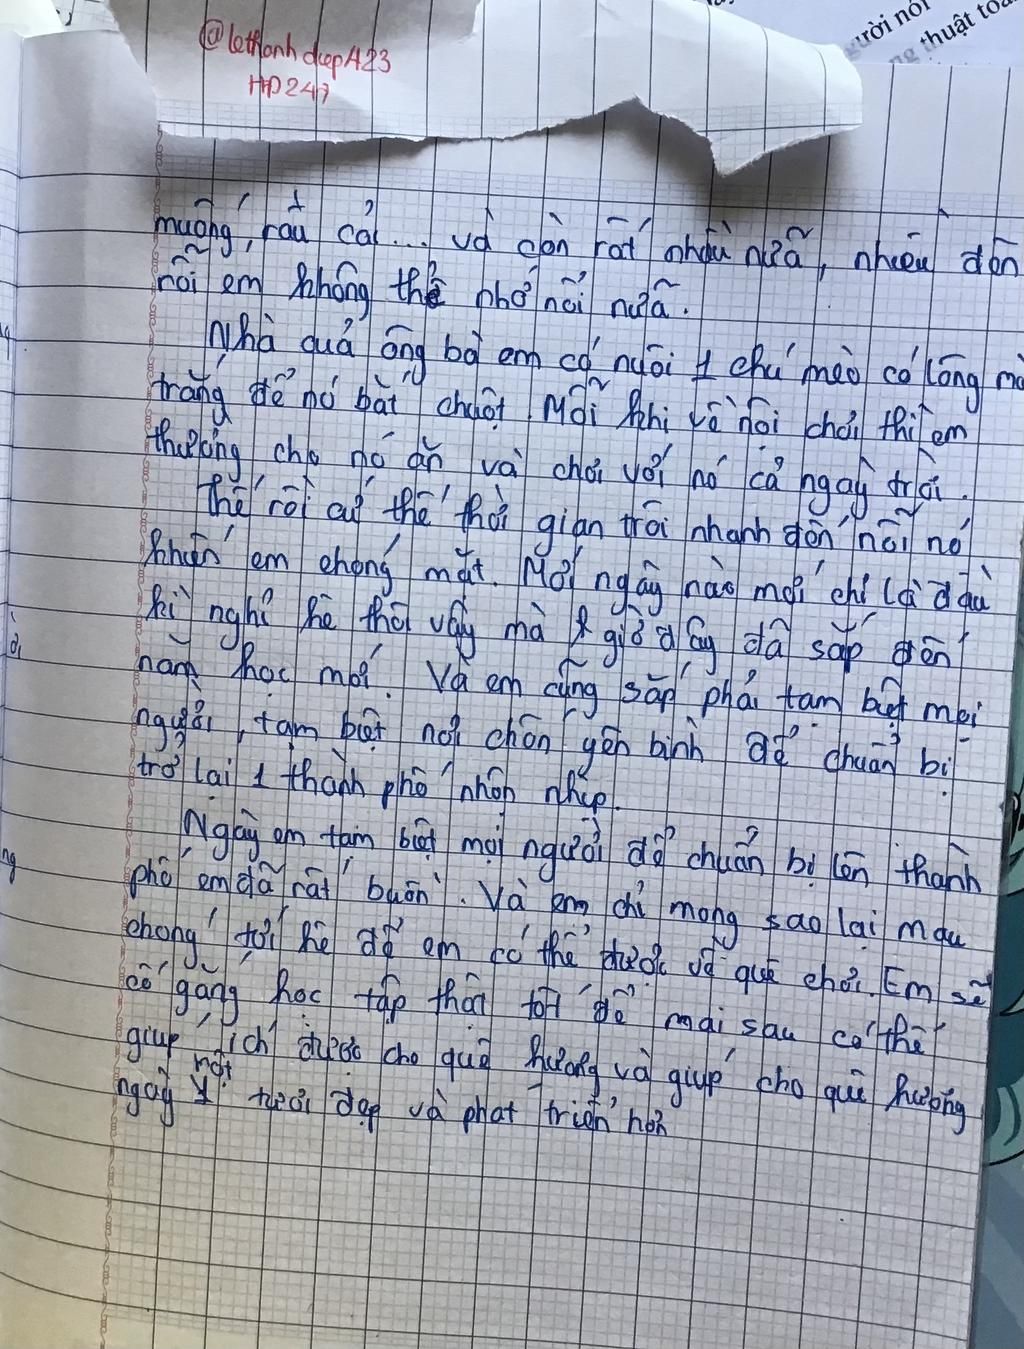 @lethanhdiepA23
HP247
ười nói
ng thuật toá
muống, rau cải... và còn rất nhiều nữa, nhiều đến
nỗi em không thể nhớ nổi nữa.
Nhà của ông bà em có nuôi 1 chú mèo có lông mà
trắng để nó bắt chuột. Mỗi khi về nội chơi thì em
thường cho nó ăn và chơi với nó cả ngày trời.
Thế rồi cứ thế thời gian trôi nhanh đến nỗi nó
khiến em chóng mặt. Mới ngày nào mới chỉ là đầu
kì nghỉ hè thôi vậy mà giờ đây đã sắp đến
năm học mới. Và em cũng sắp phải tạm biệt mọi
người, tạm biệt nơi chốn yên bình để chuẩn bị
trở lại 1 thành phố nhộn nhịp.
Ngày em tạm biệt mọi người để chuẩn bị lên thành
phố em đã rất buồn. Và em chỉ mong sao lại mau
chóng tới hè để em có thể được về quê chơi. Em sẽ
cố gắng học tập thật tốt để mai sau có thể
giúp ích được cho quê hương và giúp cho quê hương
ngày một tươi đẹp và phát triển hơn